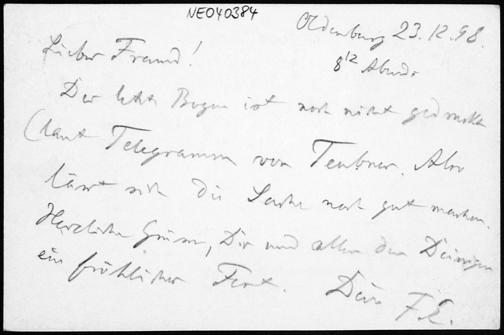 NE040384
Oldenburg 23.12.98.
8¹² Abends
Lieber Freund!
Der letzte Bogen ist noch nicht gedruckt
(laut Telegramm von Teubner. Also
lässt sich die Sache noch gut machen.
Herzliche Grüsse, Dir und allen den Deinigen
ein fröhliches Fest. Dein F. E.